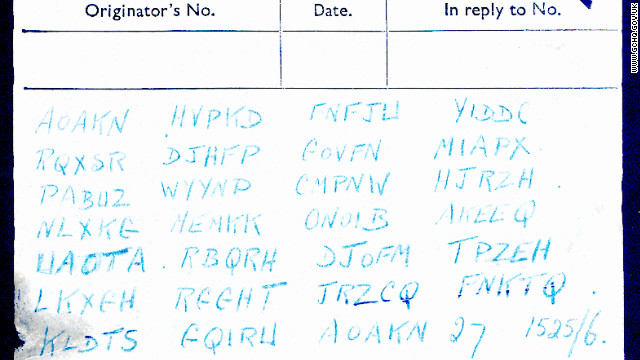 Originator's No. Date. In reply to No.
AOAKN HVPKD FNFJW YIDDC
RQXSR DJHFP GOVFN MIAPX
PABUZ WYYNP CMPNW HJRZH
NLXKG MEMKK ONOIB AKEEQ
WAOTA RBQRH DJOFM TPZEH
LKXGH RGGHT JRZCQ FNKTQ
KLDTS GQIRW AOAKN 27 1525/6.
WWW.GCHQ.GOV.UK